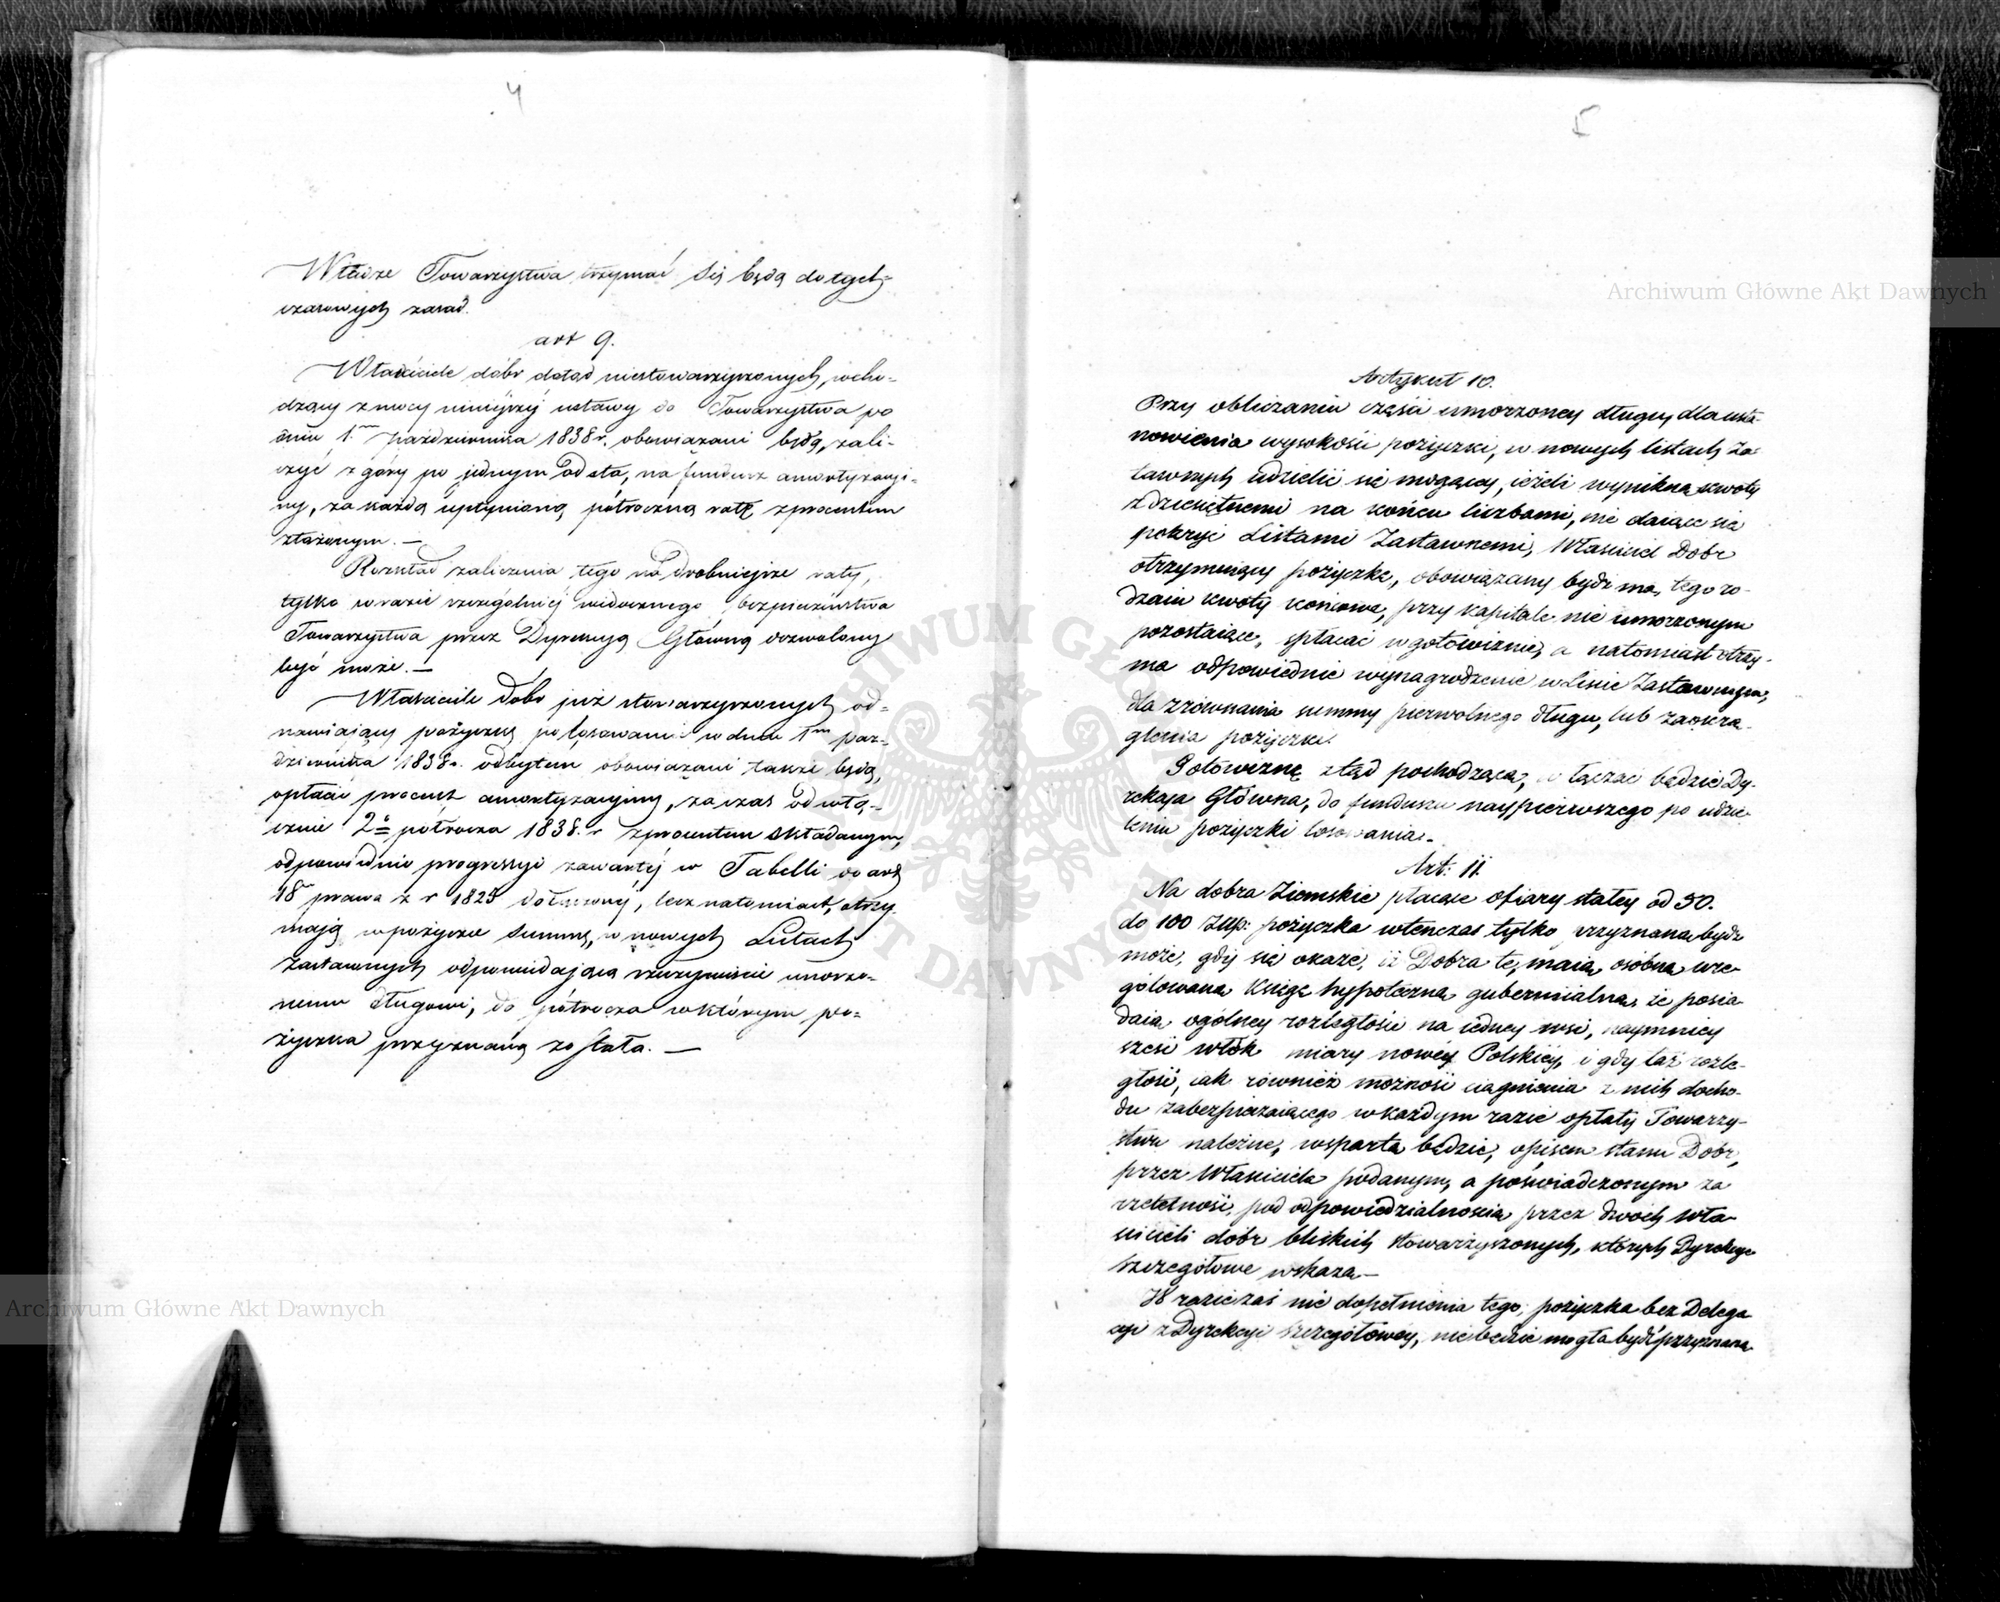 4
Władze Towarzystwa trzymać się będą dotych-
czasowych zasad.
art 9.
Właściciele dóbr dotąd niestowarzyszonych, wcho-
dzący z mocy niniejszej ustawy do Towarzystwa po
dniu 1. października 1838 r. obowiązani będą, zali-
czyć z góry po jednym od sta, na fundusz amortyzacyj-
ny, za każdą upłynioną półroczną ratę z procentem
złożonym. —
Rozkład zaliczenia tego na drobniejsze raty,
tylko w razie szczególniej widocznego bezpieczeństwa
Towarzystwa przez Dyrekcyą Główną dozwolony
być może. —
Właściciele dóbr już stowarzyszonych od-
nawiający pożyczkę po losowaniu w dniu 1m paź-
dziernika 1838 r. odbytem obowiązani także będą,
opłacić procent amortyzacyjny, za czas od włą-
cznie 2o półrocza 1838. r z procentem składanym,
odpowiednio progressyi zawartéj w Tabelli do art
18 prawa z r 1825 dołączonéj, lecz natomiast, otrzy-
mają w pożyczce summę, w nowych Listach
Zastawnych odpowiadającą rzeczywiście umorzo-
nemu długowi, do półrocza w którym po-
życzka przyznaną została. —
5
Artykuł 10.
Przy obliczaniu części umorzoney długu, dla usta-
nowienia wysokości pożyczki, w nowych listach Za-
stawnych udzielić się mogącey, ieżeli wynikną kwoty
z dziesiętnemi na końcu liczbami, nie daiące się
pokryć Listami Zastawnemi, Właściciel Dóbr
otrzymuiący pożyczkę, obowiązany bydź ma, tego ro-
dzaiu kwoty końcowe, przy kapitale nie umorzonym
pozostaiące, spłacać w gotowiznie, a natomiast otrzy-
ma odpowiednie wynagrodzenie w Liście Zastawnym,
dla zrównania summy pierwotnego długu, lub zaokrą-
glenia pożyczki.
Gotowiznę ztąd pochodzącą, włączać będzie Dy-
rekcja Główna, do funduszu naypierwszego po udzie-
leniu pożyczki losowania.
Art: 11.
Na dobra Ziemskie płacące ofiary stałey od 50.
do 100 Złłp: pożyczka wtenczas tylko przyznana bydź
może, gdy się okaże, iż Dobra te, maią osobną ure-
gulowaną księgę hypoteczną gubernialną, że posia-
daią ogólney rozległości na iedney wsi, naymniey
sześć włók miary nowéy Polskiéy, i gdy taż rozle-
głość, iak również możność ciągnienia z nich docho-
du zabezpieczaiącego w każdym razie opłaty Towarzy-
stwu należne, wsparta będzie, opisem stanu Dóbr,
przez Właściciela podanym, a poświadczonym za
rzetelność, pod odpowiedzialnością przez dwóch Wła-
ścicieli dóbr bliskich stowarzyszonych, których Dyrekcye
Szczegółowe wskażą —
W razie zaś nie dopełnienia tego, pożyczka bez Delega
cyi z Dyrekcyi Szczegółowey, nie będzie mogła bydź przyznana
Archiwum Główne Akt Dawnych
Archiwum Główne Akt Dawnych
ARCHIWUM GŁÓWNE AKT DAWNYCH